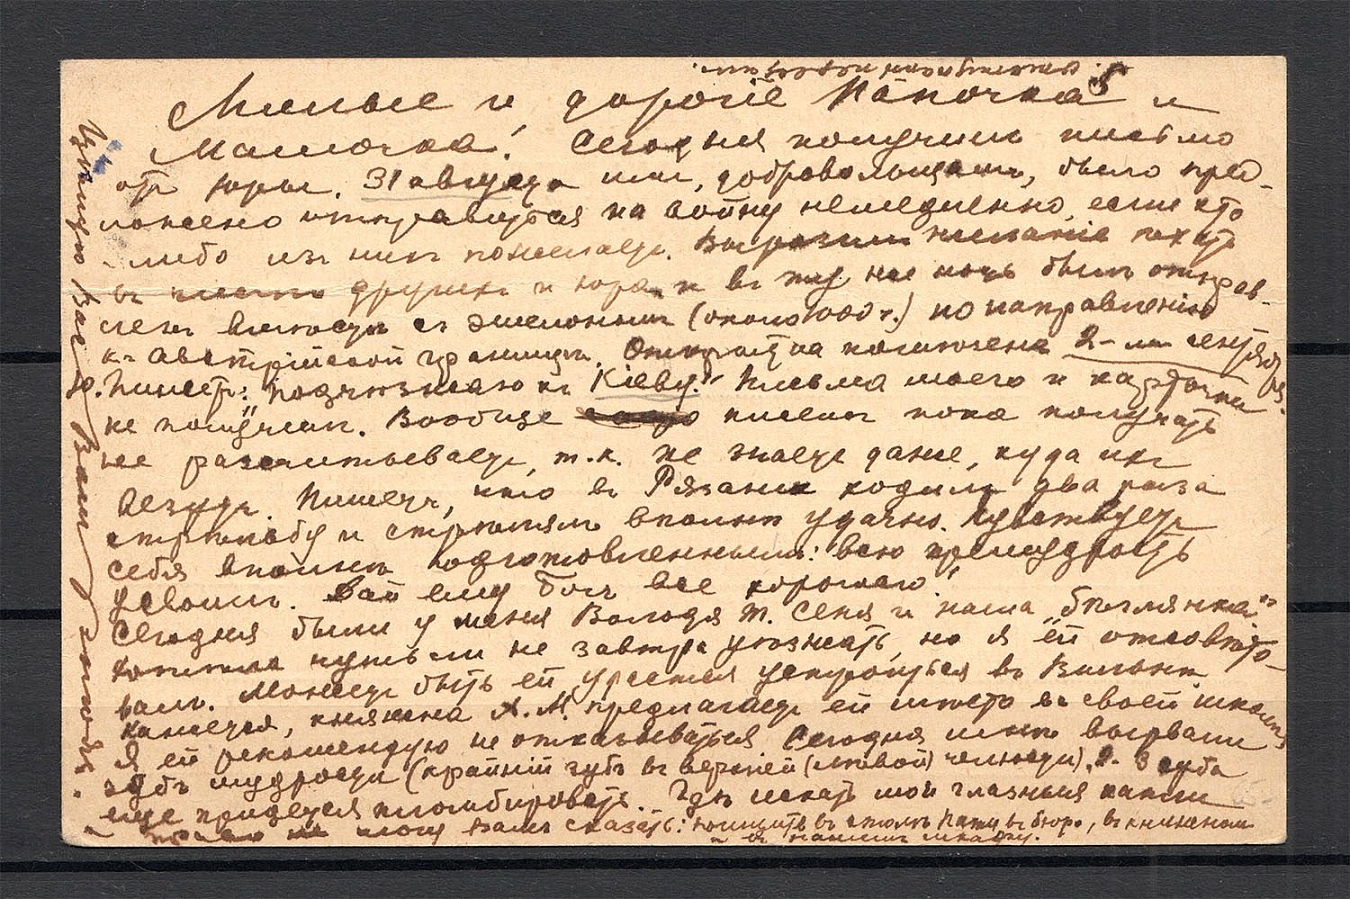 Милые и дорогіе Папочка и
Мамочка! Сегодня получилъ письмо
отъ Юры. 31 августа имъ, добровольцамъ, было пред-
ложено отправиться на войну немедленно, если кто
-либо изъ нихъ пожелаетъ. Выразили желаніе поѣхать
въ другихъ и Юра, и въ ту же ночь былъ отправ-
ленъ вмѣстѣ съ эшелономъ (около 1000 ч.) по направленію
къ австрійской границѣ. Открытка помѣчена 2-мъ сентября.
Пишетъ: "подъѣзжаю къ Кіеву". Письма моего и карточки
не получилъ. Вообще писемъ пока получать
не разсчитываетъ, т.к. не знаетъ даже, куда ихъ
везутъ. Пишетъ, что въ Рязани ходили два раза
стрѣльбу и стрѣляли вполнѣ удачно. Чувствуетъ
себя вполнѣ подготовленнымъ: всю премудрость
усвоилъ. Дай ему Богъ все хорошаго!
Сегодня были у меня Володя, т. Сеня и наша "бѣглянка".
хотѣла чуть ли не завтра уѣзжать, но я ей отсовѣто-
валъ. Можетъ быть, ей удастся устроиться въ Вильнѣ.
Кажется, княжна А. М. предлагаетъ ей мѣсто въ своей школѣ,
Я ей рекомендую не отказываться. Сегодня мнѣ вырвали
зубъ мудрости (крайній зубъ въ верхней (лѣвой) челюсти). 2 зуба
еще придется пломбировать. Гдѣ искать мои глазныя капли
не могу Вамъ сказать: поищите въ столѣ, Папы въ бюро, въ книжномъ
и въ нашемъ шкафу.
Цѣлую Васъ Вашъ